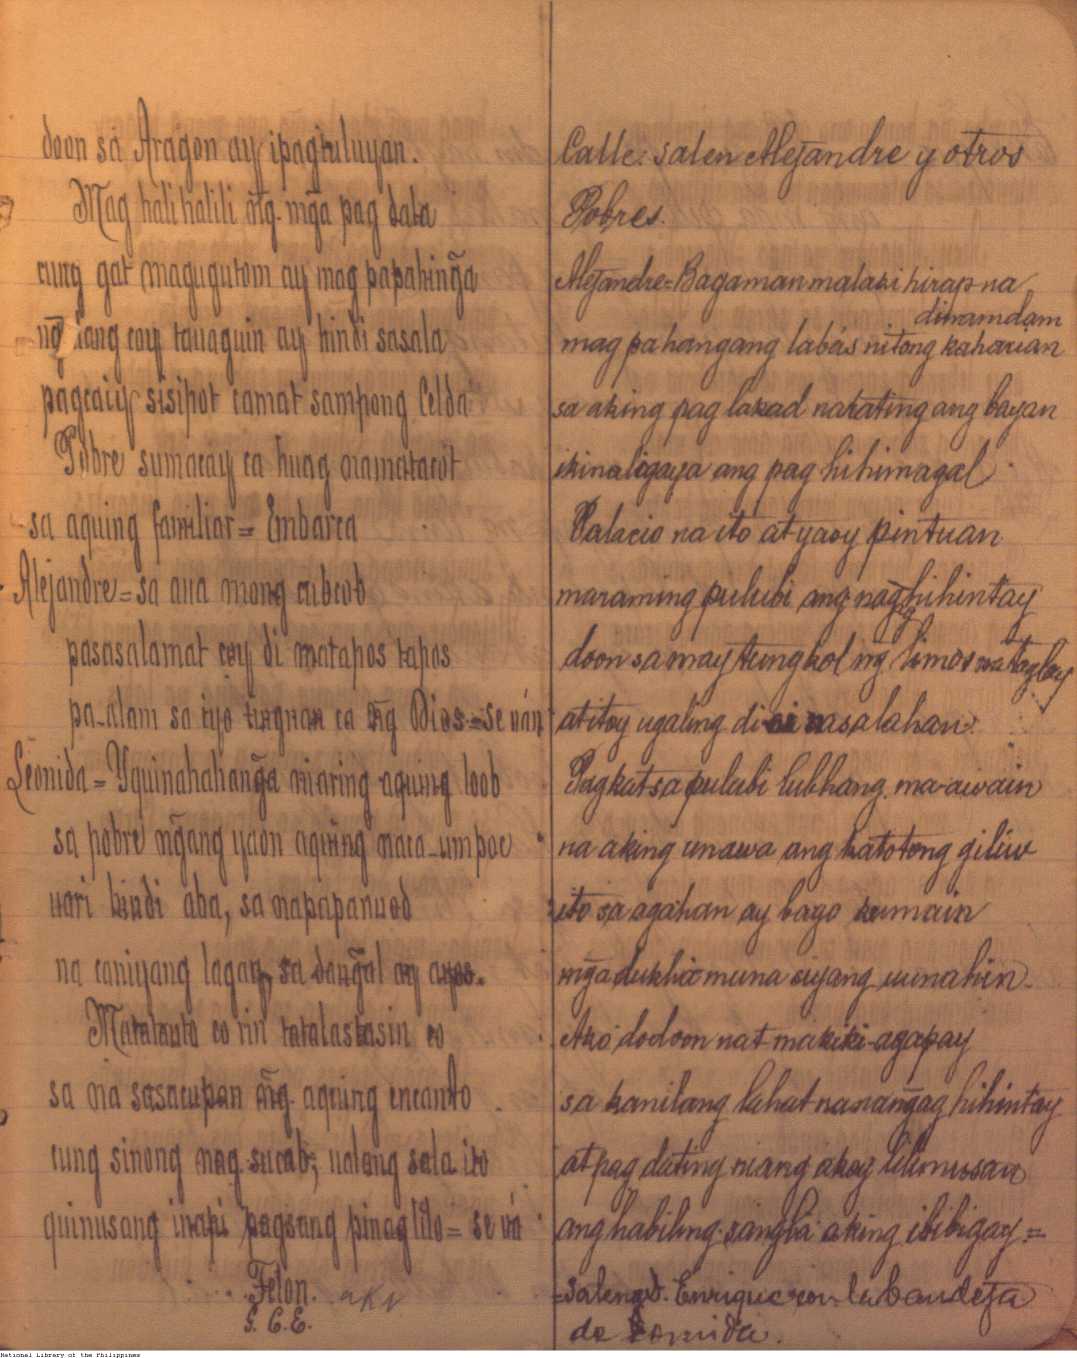 doon sa Aragon ay ipagtuluyan.
Mag halihalili n̄g mḡa pag dala
cung gat magugutom ay mag papahinḡa
n̄g ilang coy tauaguin ay hindi sasala
pagcaiy sisipot camat sampong Celda
Pobre sumacay ca huag matatacot
sa aquing familiar = Embarca
Alejandre = sa aua mong cubcob
pasasalamat coy di matapos tapos
pa-alam sa iyo tingnan ca n̄g Dios = se ván
Leonida = Yquinahahanḡa niaring aquing loob
sa pobre nḡang yaon aquing naca-umpoc
uari hindi aba, sa napapanuod
na caniyang lagay, sa danḡal ay ayos.
Matatanto co rin tatalastasin co
sa na sasacupan n̄g aquing encanto
cung sinong nag sucab, ualang sala ito
quinusang inapi pagsang pinag lilo = se vá
Felon.
G. C. E.
Calle: salen Alejandre y otros
Pobres.
Alejandre = Bagaman malaki hirap na
dinamdam
mag pahangang labás nitong kaharian
sa aking pag lakad nakating ang bayan
ikinaligaya ang pag hihimagal
Palacio na ito at yaoy pintuan
maraming pulubi ang nag hihintay
doon sa may tungkol ng limos na taglay
at itoy ugaling di nasalahan.
Pagkat sa pulubi lubhang ma-awain
na aking unawa ang katotong giliw
ito sa agahan ay bago kumain
mḡa dukha muna siyang uunahin.
Ako dodoon nat makiki-agapay
sa kanilang lahat nanangag hihintay
at pag dating niang akoy lilimusan
ang habiling sangla aking ibibigay =
= Salen d. Enrique con la bandeja
de comida.